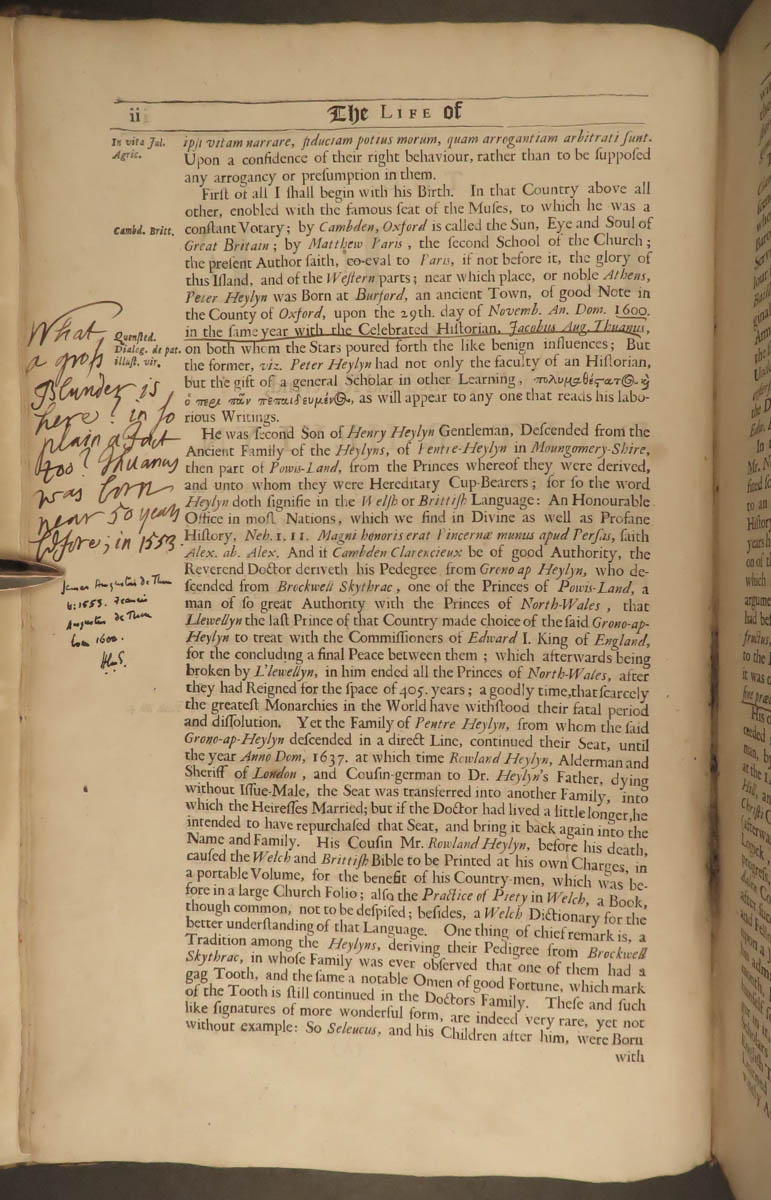 ii The LIFE of
In vita Jul. Agric.
ipſi vitam narrare, fiduciam potius morum, quam arrogantiam arbitrati ſunt.
Upon a confidence of their right behaviour, rather than to be ſuppoſed
any arrogancy or preſumption in them.
Firſt of all I ſhall begin with his Birth. In that Country above all
other, enobled with the famous ſeat of the Muſes, to which he was a
Cambd. Britt.
conſtant Votary; by Cambden, Oxford is called the Sun, Eye and Soul of
Great Britain; by Matthew Paris, the ſecond School of the Church;
the preſent Author ſaith, co-eval to Paris, if not before it, the glory of
this Iſland, and of the Weſtern parts; near which place, or noble Athens,
Peter Heylyn was Born at Burford, an ancient Town, of good Note in
the County of Oxford, upon the 29th. day of Novemb. An. Dom. 1600.
in the ſame year with the Celebrated Hiſtorian, Jacobus Aug. Thuanus,
Quenſted.
Dialog. de pat.
illuſt. vir.
on both whom the Stars poured forth the like benign influences; But
the former, viz. Peter Heylyn had not only the faculty of an Hiſtorian,
but the gift of a general Scholar in other Learning, πολυμαθέςατ⊙ ϗ
ὁ περι πᾶν πεπαιδευμέν⊙, as will appear to any one that reads his labo-
rious Writings.
He was ſecond Son of Henry Heylyn Gentleman, Deſcended from the
Ancient Family of the Heylyns, of Pentre-Heylyn in Moungomery-Shire,
then part of Powis-Land, from the Princes whereof they were derived,
and unto whom they were Hereditary Cup-Bearers; for ſo the word
Heylyn doth ſignifie in the Welſh or Brittiſh Language: An Honourable
Office in moſt Nations, which we find in Divine as well as Profane
Hiſtory, Neh. 1. 11. Magni honoris erat Pincernæ munus apud Perſas, ſaith
Alex. ab. Alex. And if Cambden Clarencieux be of good Authority, the
Reverend Doctor deriveth his Pedegree from Grono ap Heylyn, who de-
ſcended from Brockwell Skythrac, one of the Princes of Powis-Land, a
man of ſo great Authority with the Princes of North-Wales, that
Llewellyn the laſt Prince of that Country made choice of the ſaid Grono-ap-
Heylyn to treat with the Commiſſioners of Edward I. King of England,
for the concluding a final Peace between them; which afterwards being
broken by L'lewellyn, in him ended all the Princes of North-Wales, after
they had Reigned for the ſpace of 405. years; a goodly time, that ſcarcely
the greateſt Monarchies in the World have withſtood their fatal period
and diſſolution. Yet the Family of Pentre Heylyn, from whom the ſaid
Grono-ap-Heylyn deſcended in a direct Line, continued their Seat, until
the year Anno Dom, 1637. at which time Rowland Heylyn, Alderman and
Sheriff of London, and Couſin-german to Dr. Heylyn's Father, dying
without Iſſue-Male, the Seat was transferred into another Family, into
which the Heireſſes Married; but if the Doctor had lived a little longer, he
intended to have repurchaſed that Seat, and bring it back again into the
Name and Family. His Couſin Mr. Rowland Heylyn, before his death,
cauſed the Welch and Brittiſh Bible to be Printed at his own Charges, in
a portable Volume, for the benefit of his Country-men, which was be-
fore in a large Church Folio; alſo the Practice of Piety in Welch, a Book,
though common, not to be deſpiſed; beſides, a Welch Dictionary for the
better underſtanding of that Language. One thing of chief remark is, a
Tradition among the Heylyns, deriving their Pedigree from Brockwell
Skythrac, in whoſe Family was ever obſerved that one of them had a
gag Tooth, and the ſame a notable Omen of good Fortune, which mark
of the Tooth is ſtill continued in the Doctors Family. Theſe and ſuch
like ſignatures of more wonderful form, are indeed very rare, yet not
without example: So Seleucus, and his Children after him, were Born
with
What
a groſs
Blunder is
here! in ſo
plain a fact
too! Thuanus
was born
near 50 years
before; in 1553.
James Augustus de Thou
b: 1553. Francis
Augustus de Thou
born 1600.